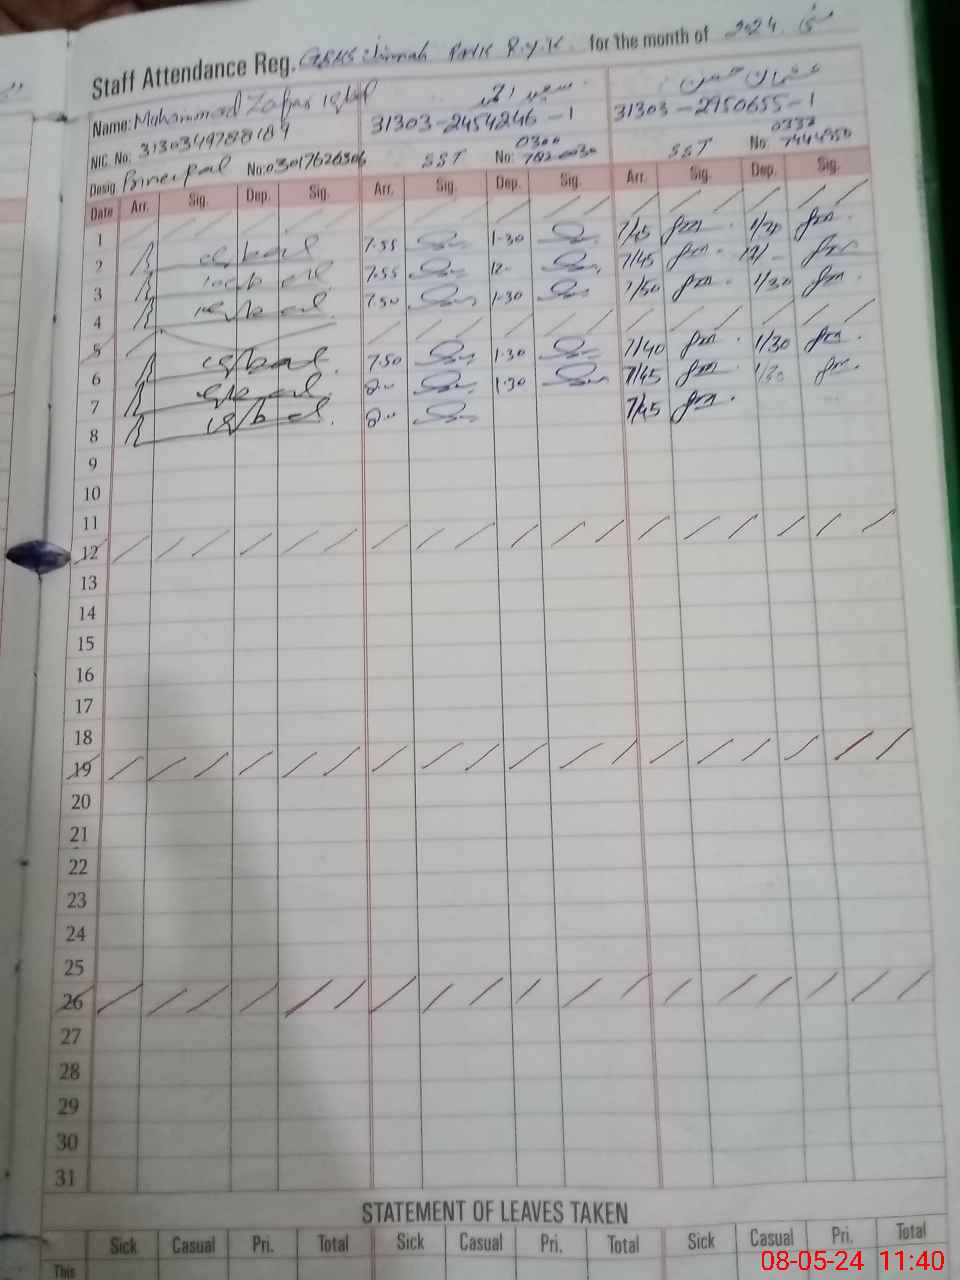 Staff Attendance Reg. for the month of 2024 مئی
Name: Muhammad Zafar Iqbal سعید احمد عثمان حسن
NIC. No: 3130349788189 31303-2454246-1 31303-2950655-1
Desig Principal No: 03017626306 SST No: 0300 SST No: 0333
Date Arr. Sig. Dep. Sig. Arr. Sig. Dep. Sig. Arr. Sig. Dep. Sig.
1
2 iqbal 7.55 1.30 7/45 1/30
3 7.55 12- 7/45 12/-
4 iqbal 7.50 1.30 7/50 1/30
5
6 iqbal 7.50 1.30 7/40 1/30
7 iqbal 8- 1.30 7/45 1/30
8 iqbal 8- 7/45
9
10
11
12
13
14
15
16
17
18
19
20
21
22
23
24
25
26
27
28
29
30
31
STATEMENT OF LEAVES TAKEN
Sick Casual Pri. Total Sick Casual Pri. Total Sick Casual Pri. Total
This
08-05-24 11:40